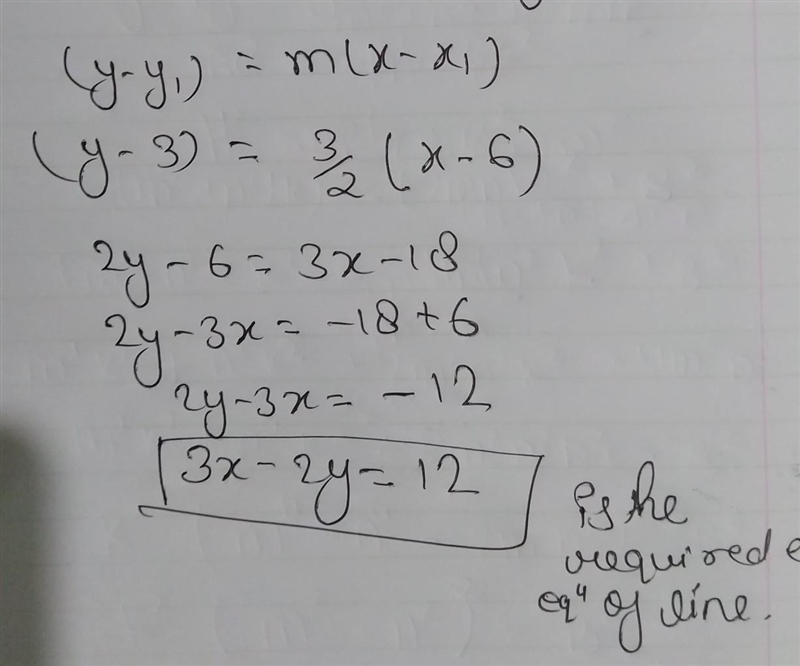 (y-y₁) = m(x-x₁)
(y-3) = 3/2 (x-6)
2y-6 = 3x-18
2y-3x = -18+6
2y-3x = -12
3x-2y=12
is the
required
eqⁿ of line.